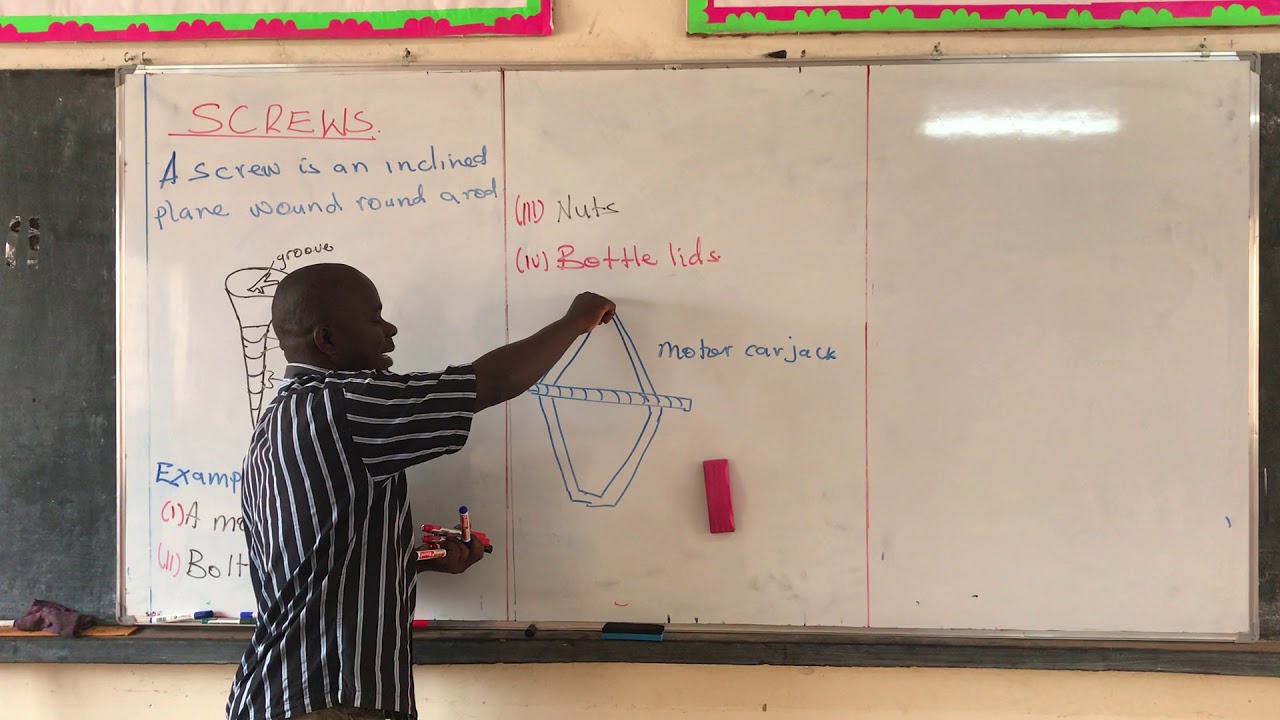 SCREWS.
A screw is an inclined
plane wound round a rod
groove
(I) A
(II) Bolt
(III) Nuts
(IV) Bottle lids.
motor car jack